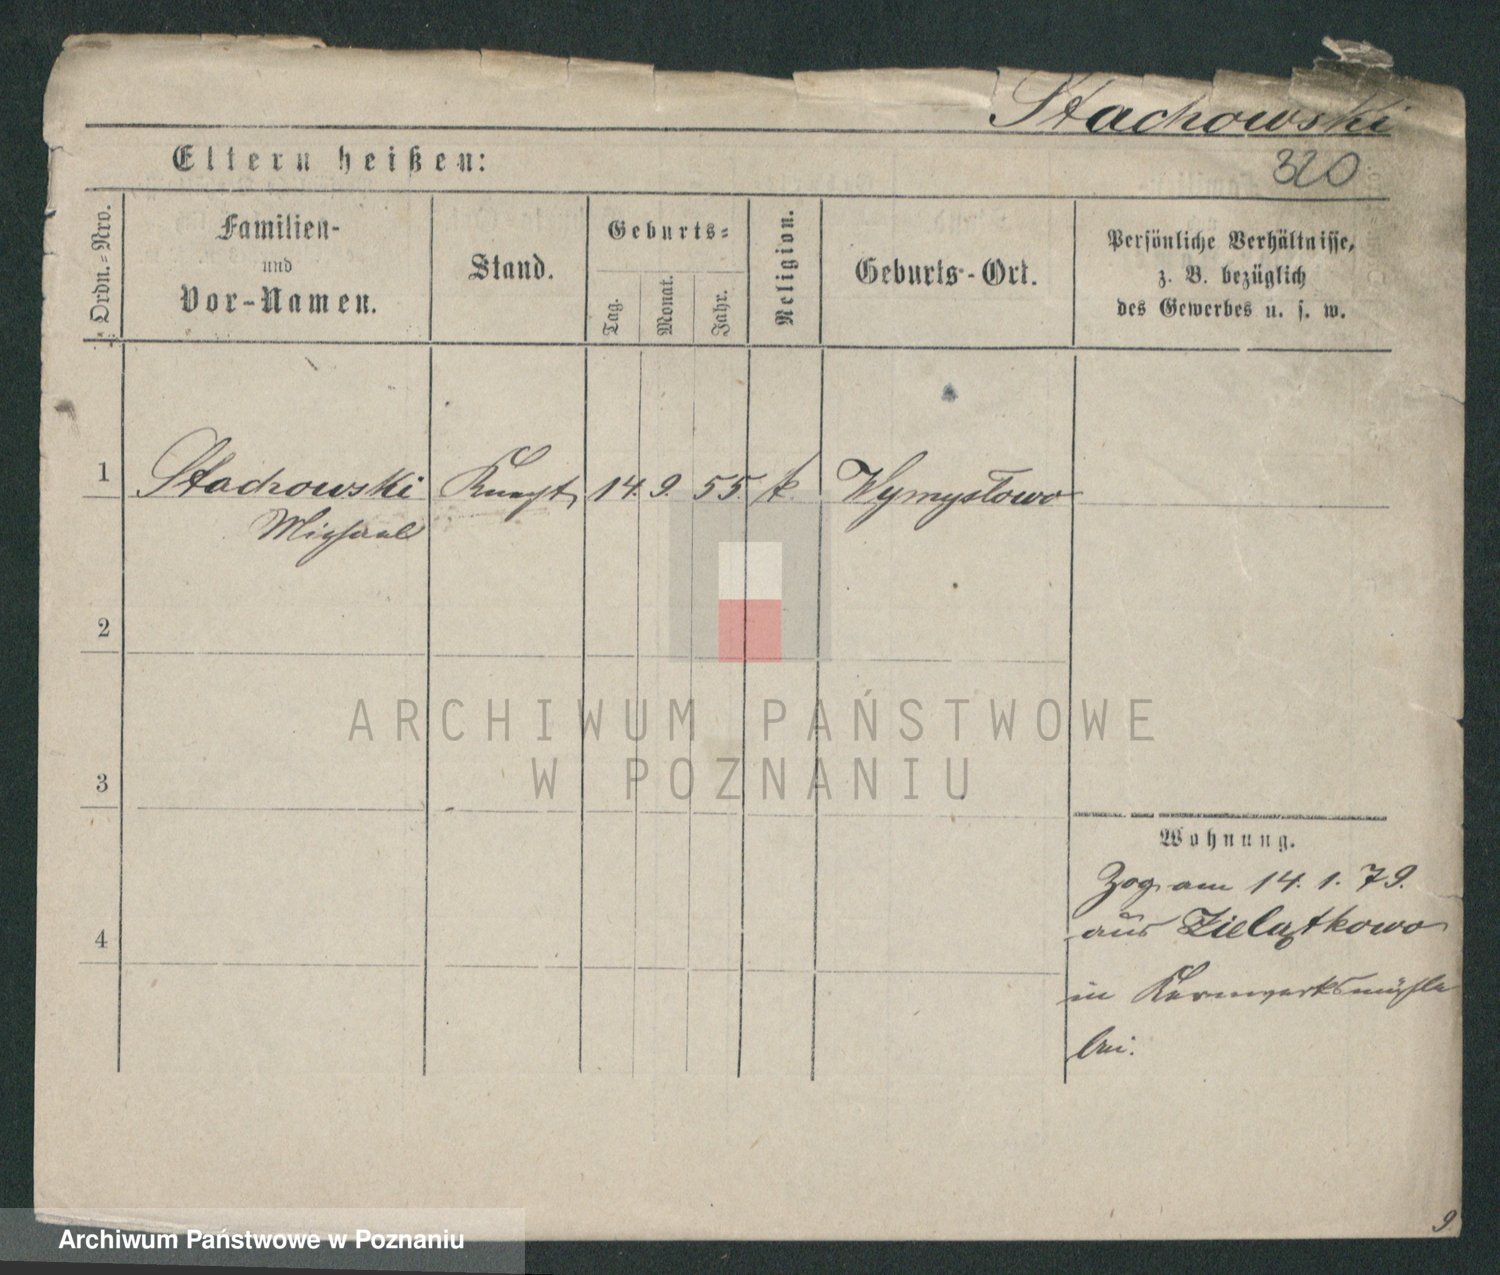 Stachowski
320
Eltern heißen:
Ordn.-Nro.
Familien-
und
Vor-Namen.
Stand.
Geburts-
Tag.
Monat.
Jahr.
Religion.
Geburts-Ort.
Persönliche Verhältnisse,
z. B. bezüglich
des Gewerbes u. s. w.
1
Stachowski Knecht 14. 9. 55. k. Wymysłowo
Michael
2
3
4
Wohnung.
Zog am 14. 1. 79.
aus Zielątkowo
in
bei.
ARCHIWUM PAŃSTWOWE
W POZNANIU
9
Archiwum Państwowe w Poznaniu